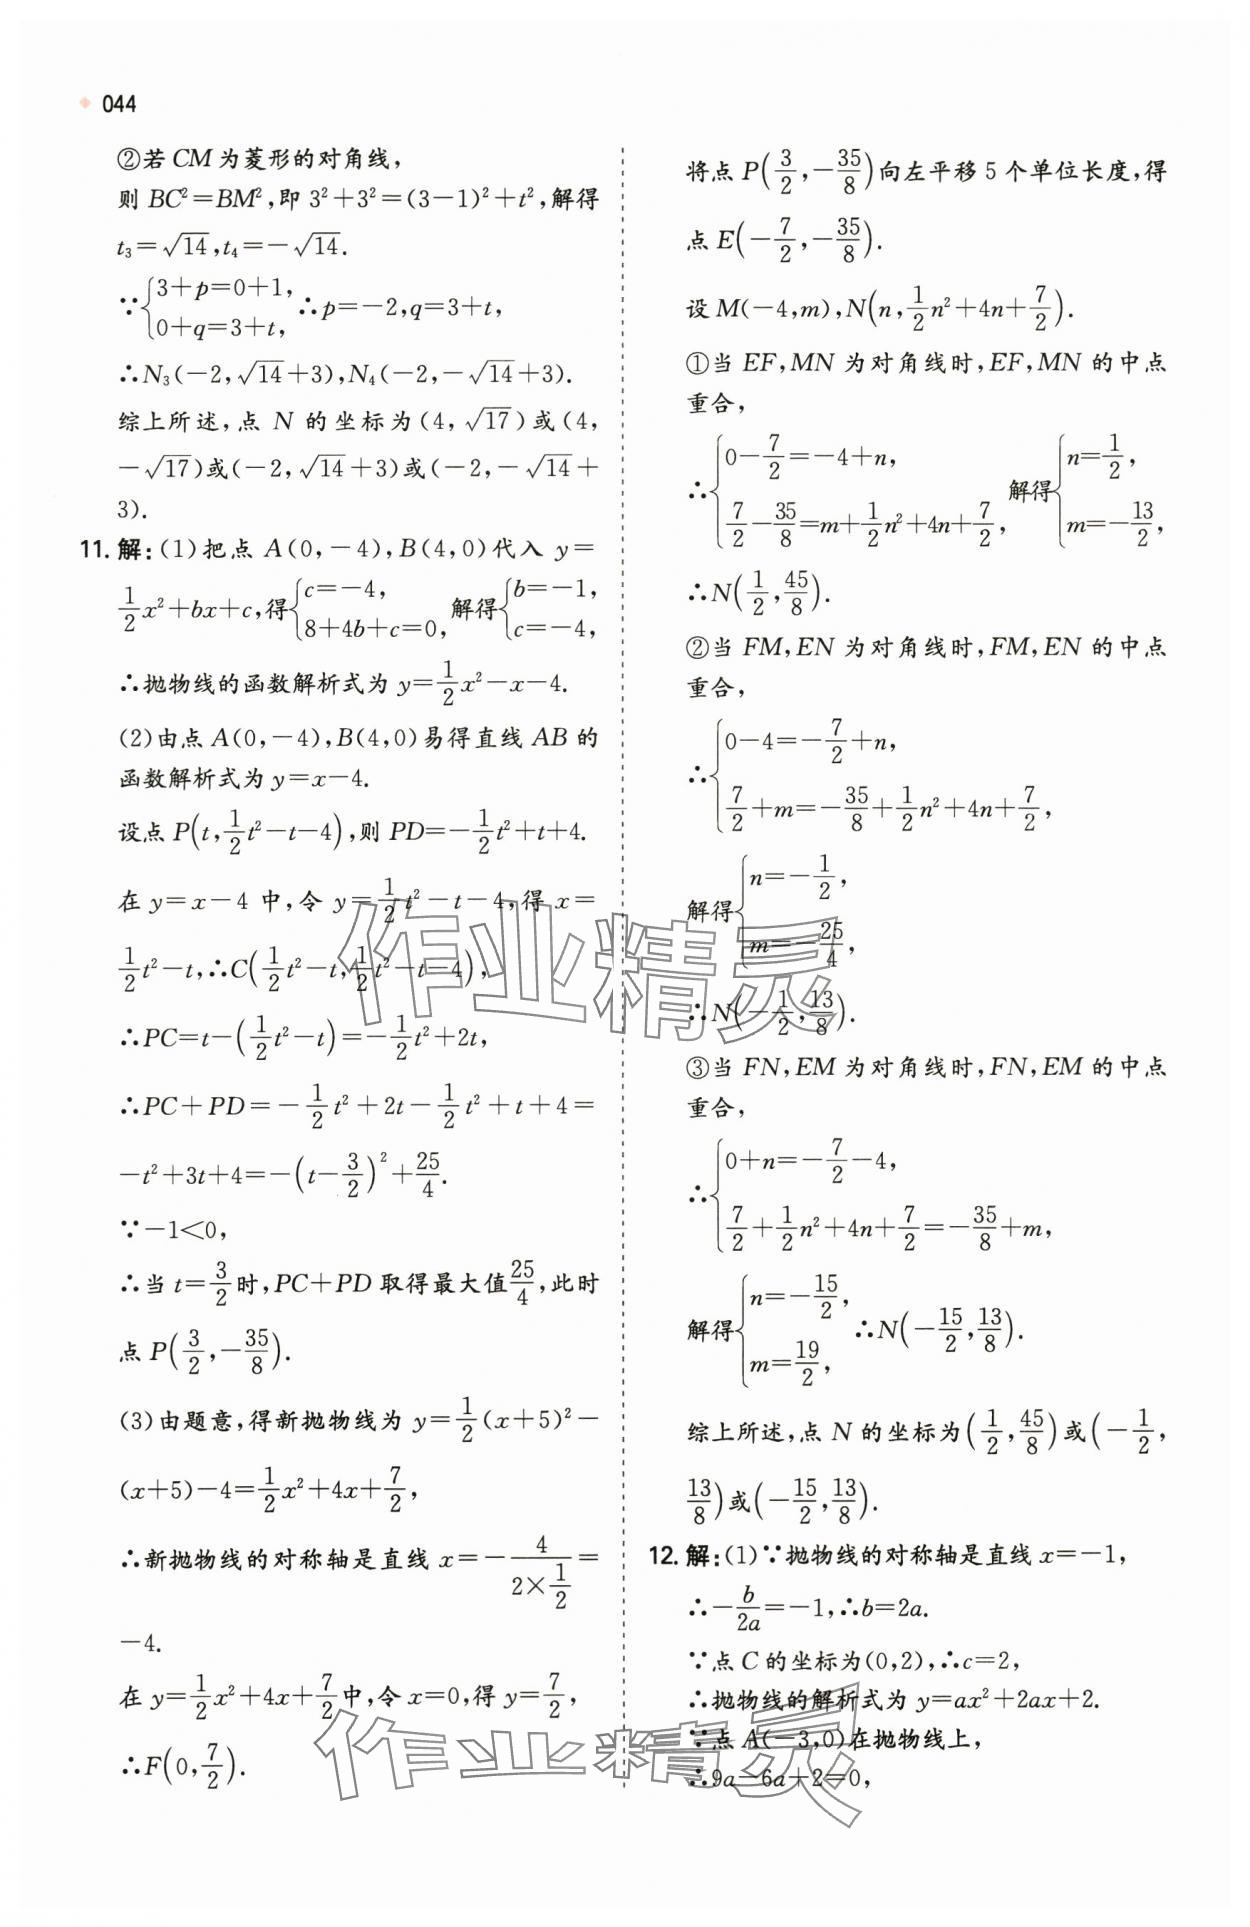 044
②若 CM 为菱形的对角线,
则 BC²=BM²,即 3²+3²=(3-1)²+t²,解得
t₃=√14,t₄=-√14.
∵{3+p=0+1, 0+q=3+t, ∴p=-2,q=3+t,
∴N₃(-2,√14+3),N₄(-2,-√14+3).
综上所述,点 N 的坐标为(4,√17)或(4,
-√17)或(-2,√14+3)或(-2,-√14+
3).
11. 解:(1)把点 A(0,-4),B(4,0)代入 y=
1/2x²+bx+c,得{c=-4, 8+4b+c=0, 解得{b=-1, c=-4,
∴抛物线的函数解析式为 y=1/2x²-x-4.
(2)由点 A(0,-4),B(4,0)易得直线 AB 的
函数解析式为 y=x-4.
设点 P(t,1/2t²-t-4),则 PD=-1/2t²+t+4.
在 y=x-4 中,令 y=1/2t²-t-4,得 x=
1/2t²-t,∴C(1/2t²-t,1/2t²-t-4),
∴PC=t-(1/2t²-t)=-1/2t²+2t,
∴PC+PD=-1/2t²+2t-1/2t²+t+4=
-t²+3t+4=-(t-3/2)²+25/4.
∵-1<0,
∴当 t=3/2时,PC+PD 取得最大值25/4,此时
点 P(3/2,-35/8).
(3)由题意,得新抛物线为 y=1/2(x+5)²-
(x+5)-4=1/2x²+4x+7/2,
∴新抛物线的对称轴是直线 x=-4/(2×1/2)=
-4.
在 y=1/2x²+4x+7/2中,令 x=0,得 y=7/2,
∴F(0,7/2).
将点 P(3/2,-35/8)向左平移 5 个单位长度,得
点 E(-7/2,-35/8).
设 M(-4,m),N(n,1/2n²+4n+7/2).
①当 EF,MN 为对角线时,EF,MN 的中点
重合,
∴{0-7/2=-4+n, 7/2-35/8=m+1/2n²+4n+7/2, 解得{n=1/2, m=-13/2,
∴N(1/2,45/8).
②当 FM,EN 为对角线时,FM,EN 的中点
重合,
∴{0-4=-7/2+n, 7/2+m=-35/8+1/2n²+4n+7/2,
解得{n=-1/2, m=-25/4,
∴N(-1/2,13/8).
③当 FN,EM 为对角线时,FN,EM 的中点
重合,
∴{0+n=-7/2-4, 7/2+1/2n²+4n+7/2=-35/8+m,
解得{n=-15/2, m=19/2, ∴N(-15/2,13/8).
综上所述,点 N 的坐标为(1/2,45/8)或(-1/2,
13/8)或(-15/2,13/8).
12. 解:(1)∵抛物线的对称轴是直线 x=-1,
∴-b/2a=-1,∴b=2a.
∵点 C 的坐标为(0,2),∴c=2,
∴抛物线的解析式为 y=ax²+2ax+2.
∵点 A(-3,0)在抛物线上,
∴9a-6a+2=0,
作业精灵
作业精灵